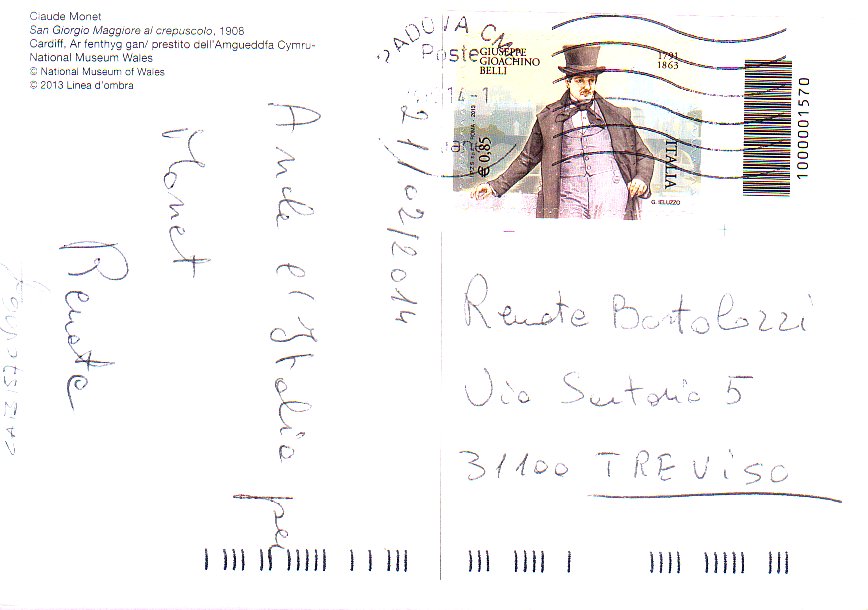 Claude Monet
San Giorgio Maggiore al crepuscolo, 1908
Cardiff, Ar fenthyg gan/ prestito dell'Amgueddfa Cymru-
National Museum Wales
© National Museum of Wales
© 2013 Linea d'ombra
21/02/2014
Anche
Italia per
Monet
Renate
PADOVA CM
Poste
14-1
GIUSEPPE
GIOACHINO
BELLI
1791
1863
€ 0,85
ITALIA
1000001570
Renate Bortolozzi
Via Sartorio 5
31100 TREVISO